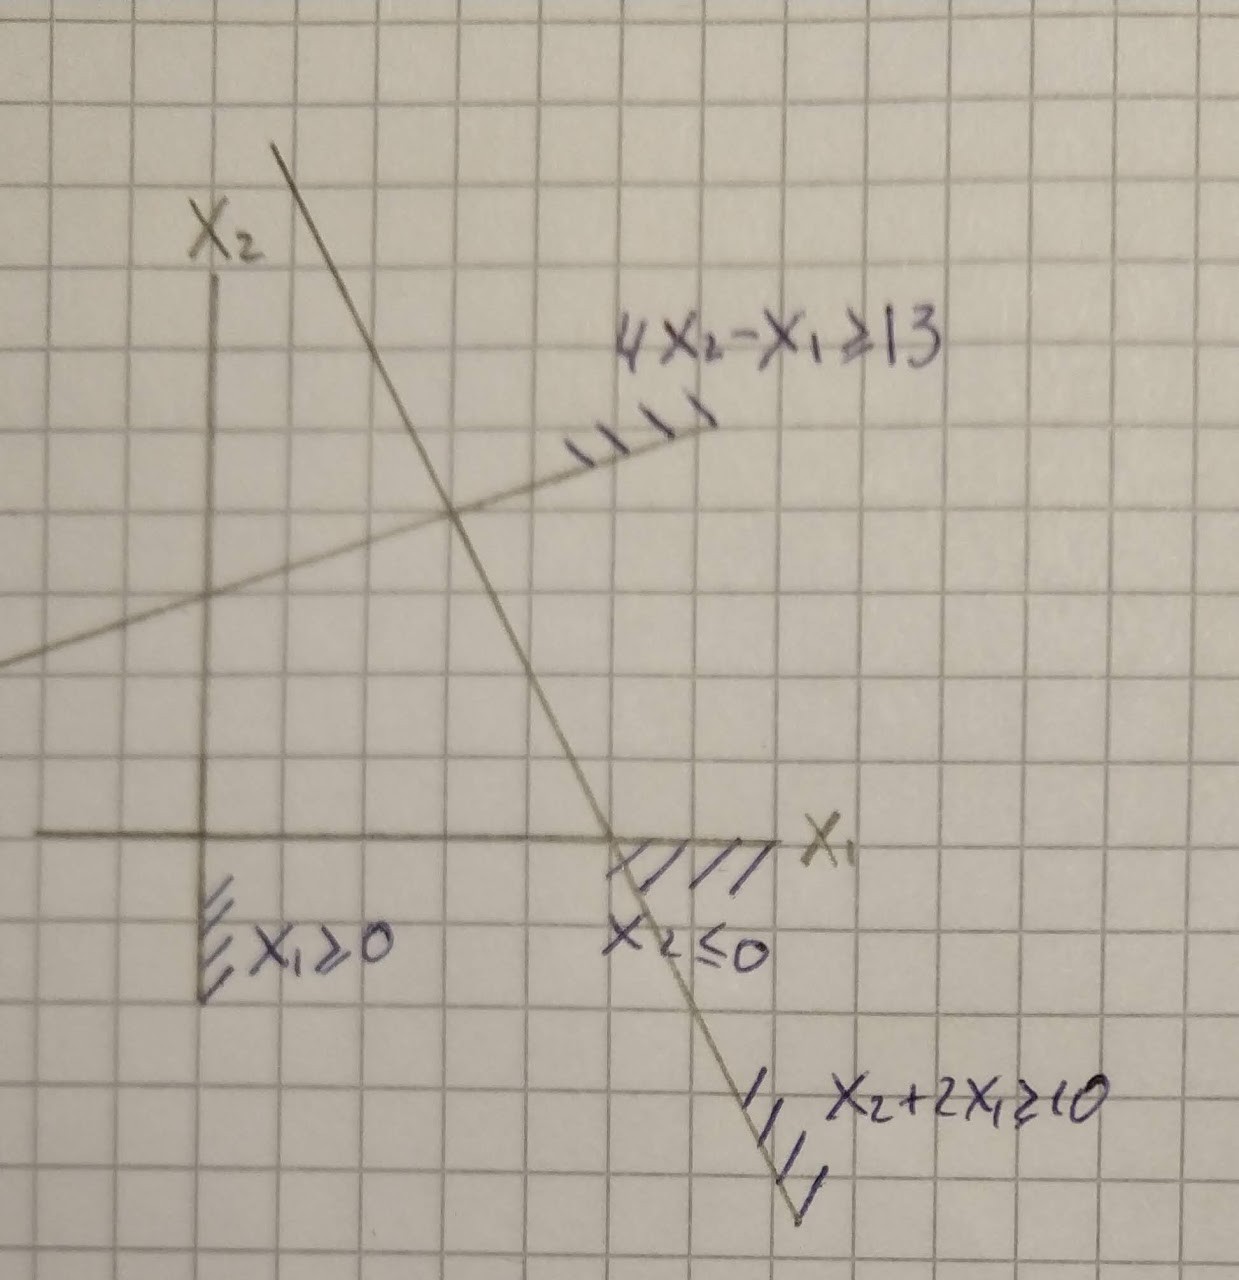 X₂
4X₂-X₁≥13
X₁
X₁≥0
X₂≤0
X₂+2X₁≥10